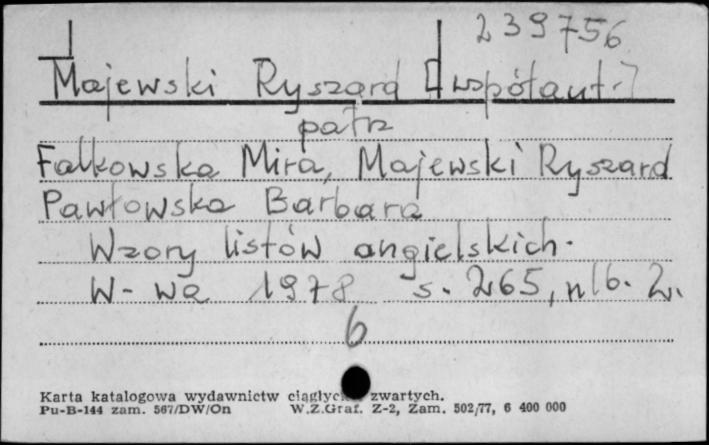 239756
Majewski Ryszard [współaut.]
patrz
Falkowska Mira, Majewski Ryszard
Pawłowska Barbara
Wzory listów angielskich.
W-wa 1978 s. 265, nlb. 2.
6
Karta katalogowa wydawnictw ciągłyc zwartych.
Pu-B-144 zam. 567/DW/On W.Z.Graf. Z-2, Zam. 502/77, 6 400 000